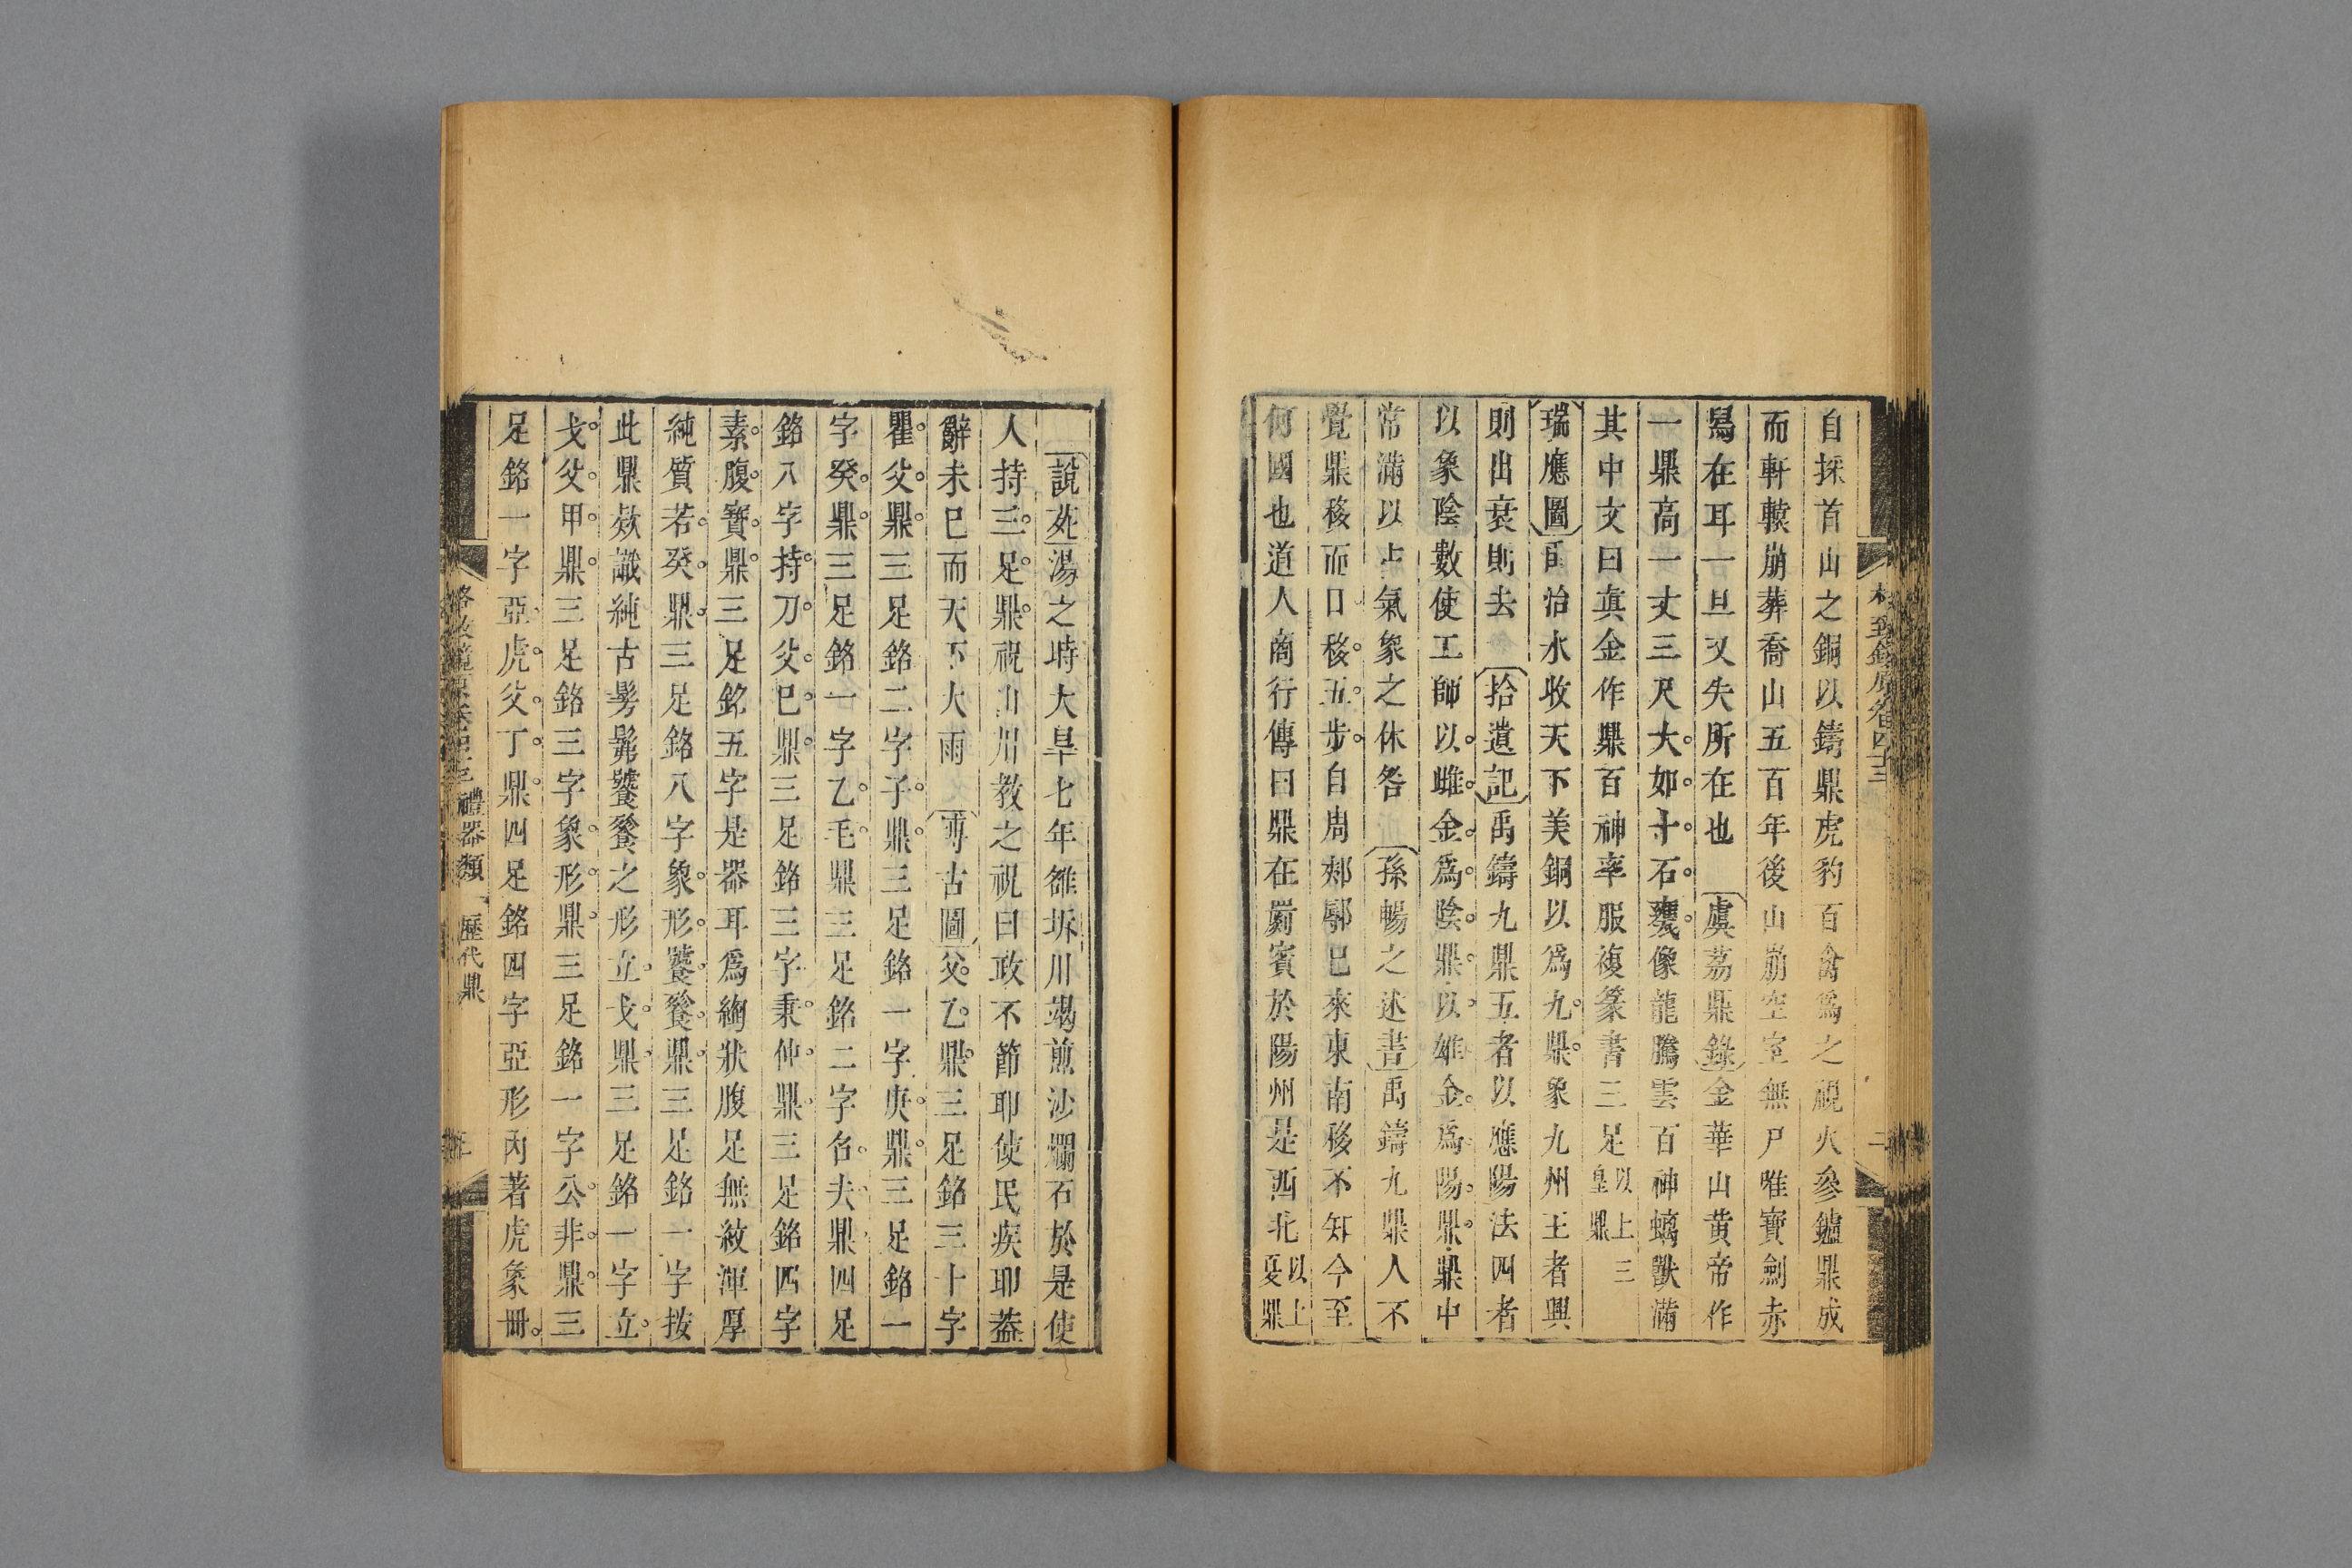 自採首山之銅以鑄鼎虎豹百禽爲之視火參鑪鼎成
而軒轅崩葬喬山五百年後山崩空室無尸唯寶劍赤
舄在耳一旦又失所在也虞荔鼎錄金華山黄帝作
一鼎高一丈三尺大如十石甕像龍騰雲百神螭獸滿
其中文曰真金作鼎百神率服複篆書三足以上三皇鼎
瑞應圖禹治水收天下美銅以爲九鼎象九州王者興
則出衰則去拾遺記禹鑄九鼎五者以應陽法四者
以象陰數使工師以雌金爲陰鼎以雄金爲陽鼎鼎中
常滿以占氣象之休咎孫暢之述書禹鑄九鼎人不
覺鼎移而日移五步自周郟鄏已來東南移不知今至
何國也道人商行傳曰鼎在罽賓於陽州是西北以上夏鼎
說苑湯之時大旱七年雒坼川竭煎沙爛石於是使
人持三足鼎祝山川教之祝曰政不節耶使民疾耶蓋
辭未已而天下大雨博古圖父乙鼎三足銘三十字
瞿父鼎三足銘二字子鼎三足銘一字庚鼎三足銘一
字癸鼎三足銘一字乙毛鼎三足銘二字名夫鼎四足
銘八字持刀父巳鼎三足銘三字秉仲鼎三足銘四字
素腹寶鼎三足銘五字是器耳爲綯狀腹足無紋渾厚
純質若癸鼎三足銘八字象形饕餮鼎三足銘一字按
此鼎款識純古髣髴饕餮之形立戈鼎三足銘一字立
戈父甲鼎三足銘三字象形鼎三足銘一字公非鼎三
足銘一字亞虎父丁鼎四足銘四字亞形內著虎象冊
禮器類 歷代鼎